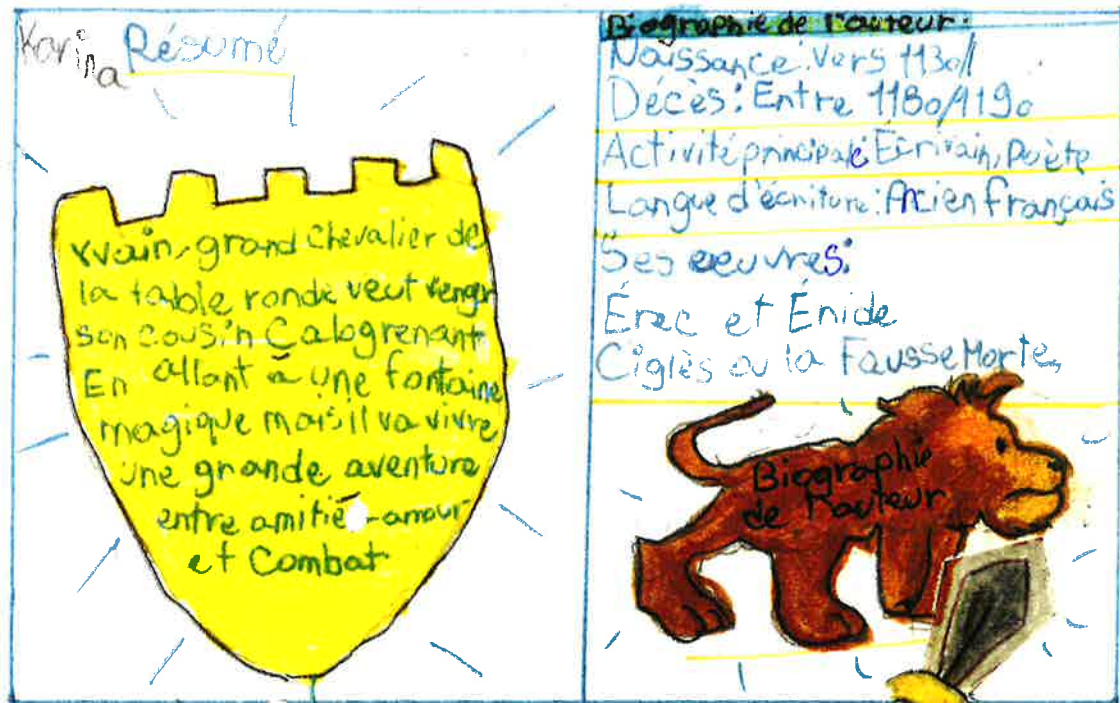 Karina Résumé
Yvain, grand Chevalier de
la table ronde veut venger
son cousin Calogrenant
En allant à une fontaine
magique mais il va vivre
une grande aventure
entre amitié-amour
et Combat
Biographie de l'auteur:
Naissance: Vers 1130//
Décès: Entre 1180/1190
Activité principale: Écrivain, Poète
Langue d'écriture: Ancien français
Ses oeuvres:
Érec et Énide
Cigles ou la Fausse Morte,
Biographie
de l'auteur